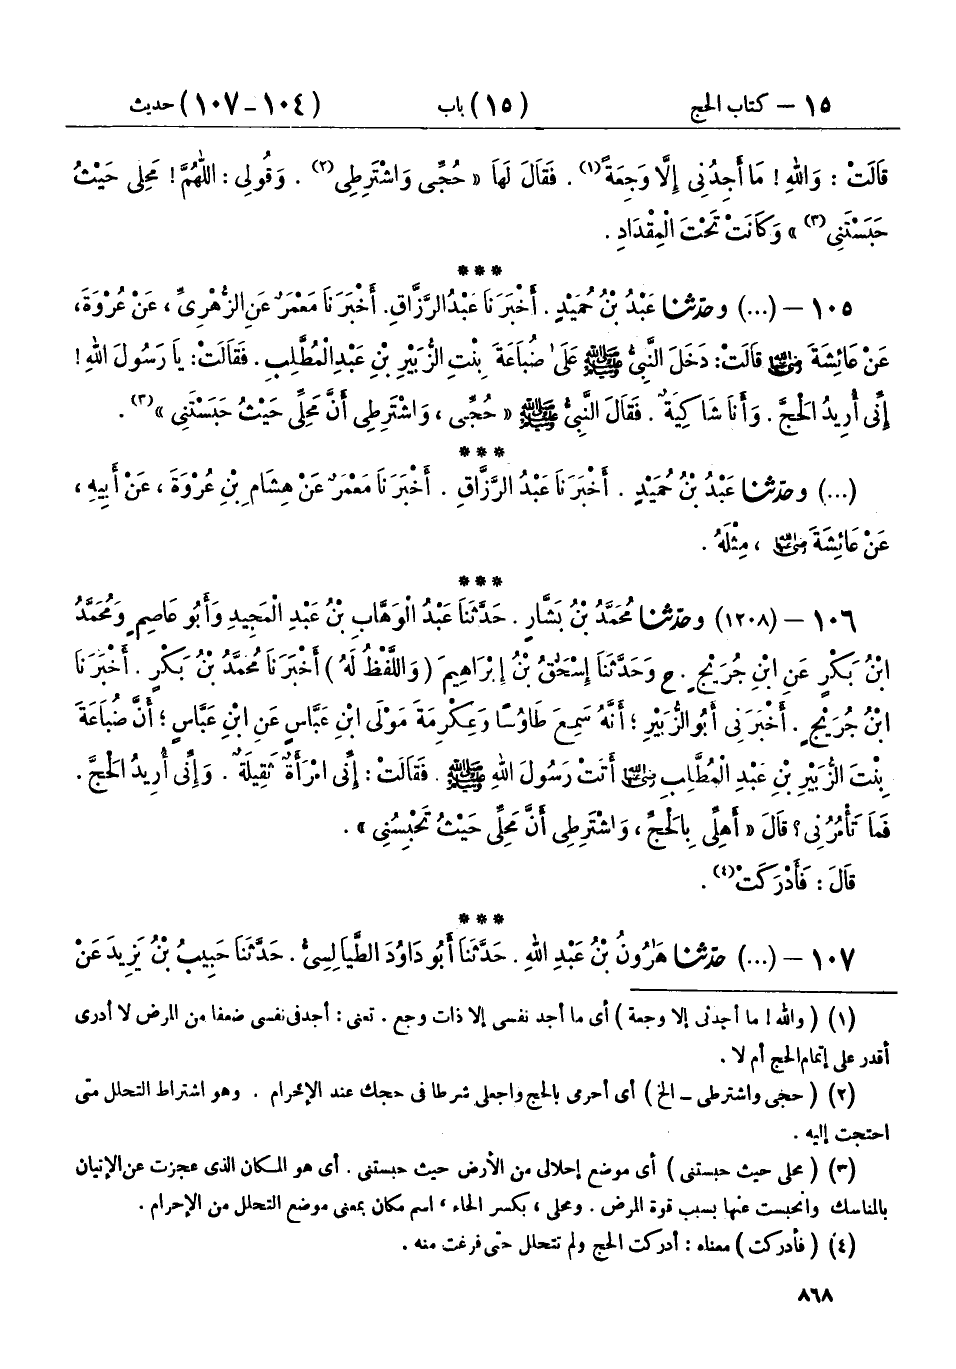 ١٥ – كتاب الحج (١٥) باب (١٠٤ – ١٠٧) حديث
قَالَتْ : وَاللهِ ! مَا أَجِدُنِى إِلَّا وَجِعَةً(١) . فَقَالَ لَهَا « حُجِّى وَاشْتَرِطِى(٢) . وَقُولِى : اللّٰهُمَّ ! مَحِلِّى حَيْثُ
حَبَسْتَنِى(٣) » وَكَانَتْ تَحْتَ الْمِقْدَادِ .
***
١٠٥ – (...) وحدّثنا عَبْدُ بْنُ حُمَيْدٍ . أَخْبَرَنَا عَبْدُ الرَّزَّاقِ . أَخْبَرَنَا مَعْمَرٌ عَنِ الزُّهْرِىِّ ، عَنْ عُرْوَةَ ،
عَنْ عَائِشَةَ رضى الله عنها قَالَتْ : دَخَلَ النَّبِىُّ ﷺ عَلَى ضُبَاعَةَ بِنْتِ الزُّبَيْرِ بْنِ عَبْدِ الْمُطَّلِبِ . فَقَالَتْ : يَا رَسُولَ اللهِ !
إِنِّى أُرِيدُ الْحَجَّ . وَأَنَا شَاكِيَةٌ . فَقَالَ النَّبِىُّ ﷺ « حُجِّى ، وَاشْتَرِطِى أَنَّ مَحِلِّى حَيْثُ حَبَسْتَنِى »(٣) .
***
(...) وحدّثنا عَبْدُ بْنُ حُمَيْدٍ . أَخْبَرَنَا عَبْدُ الرَّزَّاقِ . أَخْبَرَنَا مَعْمَرٌ عَنْ هِشَامِ بْنِ عُرْوَةَ ، عَنْ أَبِيهِ ،
عَنْ عَائِشَةَ رضى الله عنها ، مِثْلَهُ .
***
١٠٦ – (١٢٠٨) وحدّثنا مُحَمَّدُ بْنُ بَشَّارٍ . حَدَّثَنَا عَبْدُ الْوَهَّابِ بْنُ عَبْدِ الْمَجِيدِ وَأَبُو عَاصِمٍ وَمُحَمَّدُ
ابْنُ بَكْرٍ عَنِ ابْنِ جُرَيْجٍ . ح وَحَدَّثَنَا إِسْحَاقُ بْنُ إِبْرَاهِيمَ ( وَاللَّفْظُ لَهُ ) أَخْبَرَنَا مُحَمَّدُ بْنُ بَكْرٍ . أَخْبَرَنَا
ابْنُ جُرَيْجٍ . أَخْبَرَنِى أَبُو الزُّبَيْرِ ؛ أَنَّهُ سَمِعَ طَاوُسًا وَعِكْرِمَةَ مَوْلَى ابْنِ عَبَّاسٍ عَنِ ابْنِ عَبَّاسٍ ؛ أَنَّ ضُبَاعَةَ
بِنْتَ الزُّبَيْرِ بْنِ عَبْدِ الْمُطَّلِبِ رضى الله عنها أَتَتْ رَسُولَ اللهِ ﷺ . فَقَالَتْ : إِنِّى امْرَأَةٌ ثَقِيلَةٌ . وَإِنِّى أُرِيدُ الْحَجَّ .
فَمَا تَأْمُرُنِى ؟ قَالَ « أَهِلِّى بِالْحَجِّ ، وَاشْتَرِطِى أَنَّ مَحِلِّى حَيْثُ تَحْبِسُنِى » .
قَالَ : فَأَدْرَكَتْ(٤) .
***
١٠٧ – (...) حدّثنا هَرُونُ بْنُ عَبْدِ اللهِ . حَدَّثَنَا أَبُو دَاوُدَ الطَّيَالِسِىُّ . حَدَّثَنَا حَبِيبُ بْنُ يَزِيدَ عَنْ
(١) ( والله ! ما أجدنى إلا وجعة ) أى ما أجد نفسى إلا ذات وجع . تعنى : أجد فى نفسى ضعفا من المرض لا أدرى
أقدر على إتمام الحج أم لا .
(٢) ( حجى واشترطى – الخ ) أى أحرى بالحج واجعلى شرطا فى حجك عند الإحرام . وهو اشتراط التحلل متى
احتجت إليه .
(٣) ( محلى حيث حبستنى ) أى موضع إحلالى من الأرض حيث حبستنى . أى هو المكان الذى عجزت عن الإتيان
بالمناسك وانحبست عنها بسبب قوة المرض . ومحلى ، بكسر الحاء ، اسم مكان بمعنى موضع التحلل من الإحرام .
(٤) ( فأدركت ) معناه : أدركت الحج ولم تتحلل حتى فرغت منه .
٨٦٨